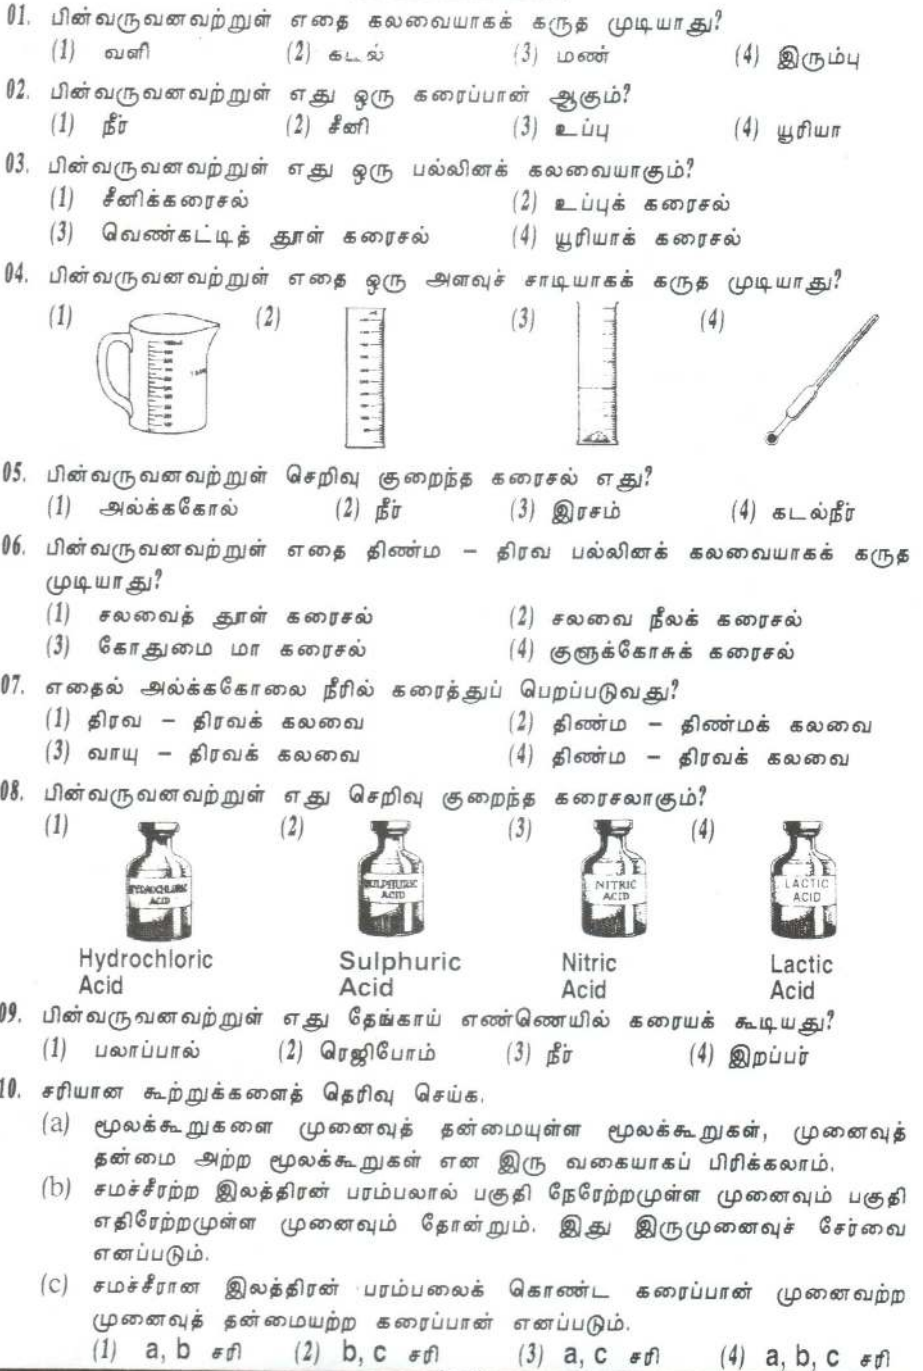 01. பின்வருவனவற்றுள் எதை கலவையாகக் கருத முடியாது?
(1) வளி (2) கடல் (3) மண் (4) இரும்பு
02. பின்வருவனவற்றுள் எது ஒரு கரைப்பான் ஆகும்?
(1) நீர் (2) சீனி (3) உப்பு (4) யூரியா
03. பின்வருவனவற்றுள் எது ஒரு பல்லினக் கலவையாகும்?
(1) சீனிக்கரைசல் (2) உப்புக் கரைசல்
(3) வெண்கட்டித் தூள் கரைசல் (4) யூரியாக் கரைசல்
04. பின்வருவனவற்றுள் எதை ஒரு அளவுச் சாடியாகக் கருத முடியாது?
(1) (2) (3) (4)
05. பின்வருவனவற்றுள் செறிவு குறைந்த கரைசல் எது?
(1) அல்க்ககோல் (2) நீர் (3) இரசம் (4) கடல்நீர்
06. பின்வருவனவற்றுள் எதை திண்ம – திரவ பல்லினக் கலவையாகக் கருத
முடியாது?
(1) சலவைத் தூள் கரைசல் (2) சலவை நீலக் கரைசல்
(3) கோதுமை மா கரைசல் (4) குளூக்கோசுக் கரைசல்
07. எதைல் அல்க்ககோலை நீரில் கரைத்துப் பெறப்படுவது?
(1) திரவ – திரவக் கலவை (2) திண்ம – திண்மக் கலவை
(3) வாயு – திரவக் கலவை (4) திண்ம – திரவக் கலவை
08. பின்வருவனவற்றுள் எது செறிவு குறைந்த கரைசலாகும்?
(1) (2) (3) (4)
HYDROCHLORIC ACID SULPHURIC ACID NITRIC ACID LACTIC ACID
Hydrochloric Sulphuric Nitric Lactic
Acid Acid Acid Acid
09. பின்வருவனவற்றுள் எது தேங்காய் எண்ணெயில் கரையக் கூடியது?
(1) பலாப்பால் (2) ரெஜிபோம் (3) நீர் (4) இறப்பர்
10. சரியான கூற்றுக்களைத் தெரிவு செய்க.
(a) மூலக்கூறுகளை முனைவுத் தன்மையுள்ள மூலக்கூறுகள், முனைவுத்
தன்மை அற்ற மூலக்கூறுகள் என இரு வகையாகப் பிரிக்கலாம்.
(b) சமச்சீரற்ற இலத்திரன் பரம்பலால் பகுதி நேரேற்றமுள்ள முனைவும் பகுதி
எதிரேற்றமுள்ள முனைவும் தோன்றும். இது இருமுனைவுச் சேர்வை
எனப்படும்.
(c) சமச்சீரான இலத்திரன் பரம்பலைக் கொண்ட கரைப்பான் முனைவற்ற
முனைவுத் தன்மையற்ற கரைப்பான் எனப்படும்.
(1) a, b சரி (2) b, c சரி (3) a, c சரி (4) a, b, c சரி